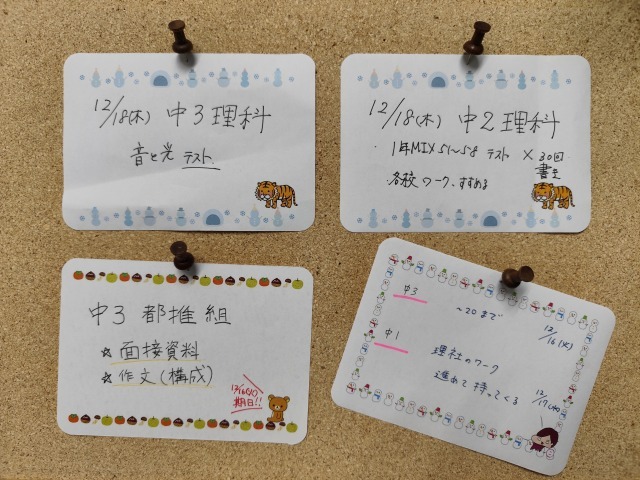 12/18(木) 中3理科
音と光 テスト
12/18(木) 中2理科
・1年MIX 51~58 テスト × 30回
各校ワークすすめる
中3 都推組
☆ 面接資料
☆ 作文(構成)
12/16(火)
期日!!
中3
~20まで
12/16(火)
中1
理社のワーク
進めて持ってくる